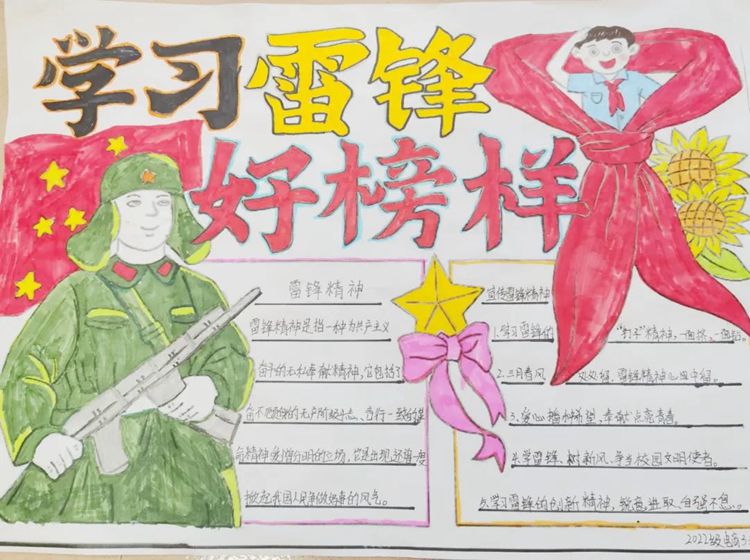 学习雷锋
好榜样
雷锋精神
雷锋精神是指一种为共产主义
奋斗的无私奉献精神,它包括了
奋不顾身的无产阶级斗志、言行一致的
精神 爱憎分明的立场,它是出现
掀起我国人民争做好事的风气。
宣传雷锋精神
1.学习雷锋的 "钉子"精神,一面挤、一面钻。
2.三月春风 处处得,雷锋精神心中留。
3.爱心播种希望、奉献点亮青春。
4.学雷锋、树新风、争当校园文明使者。
5.学习雷锋的创新精神,锐意进取、自强不息。
2022级